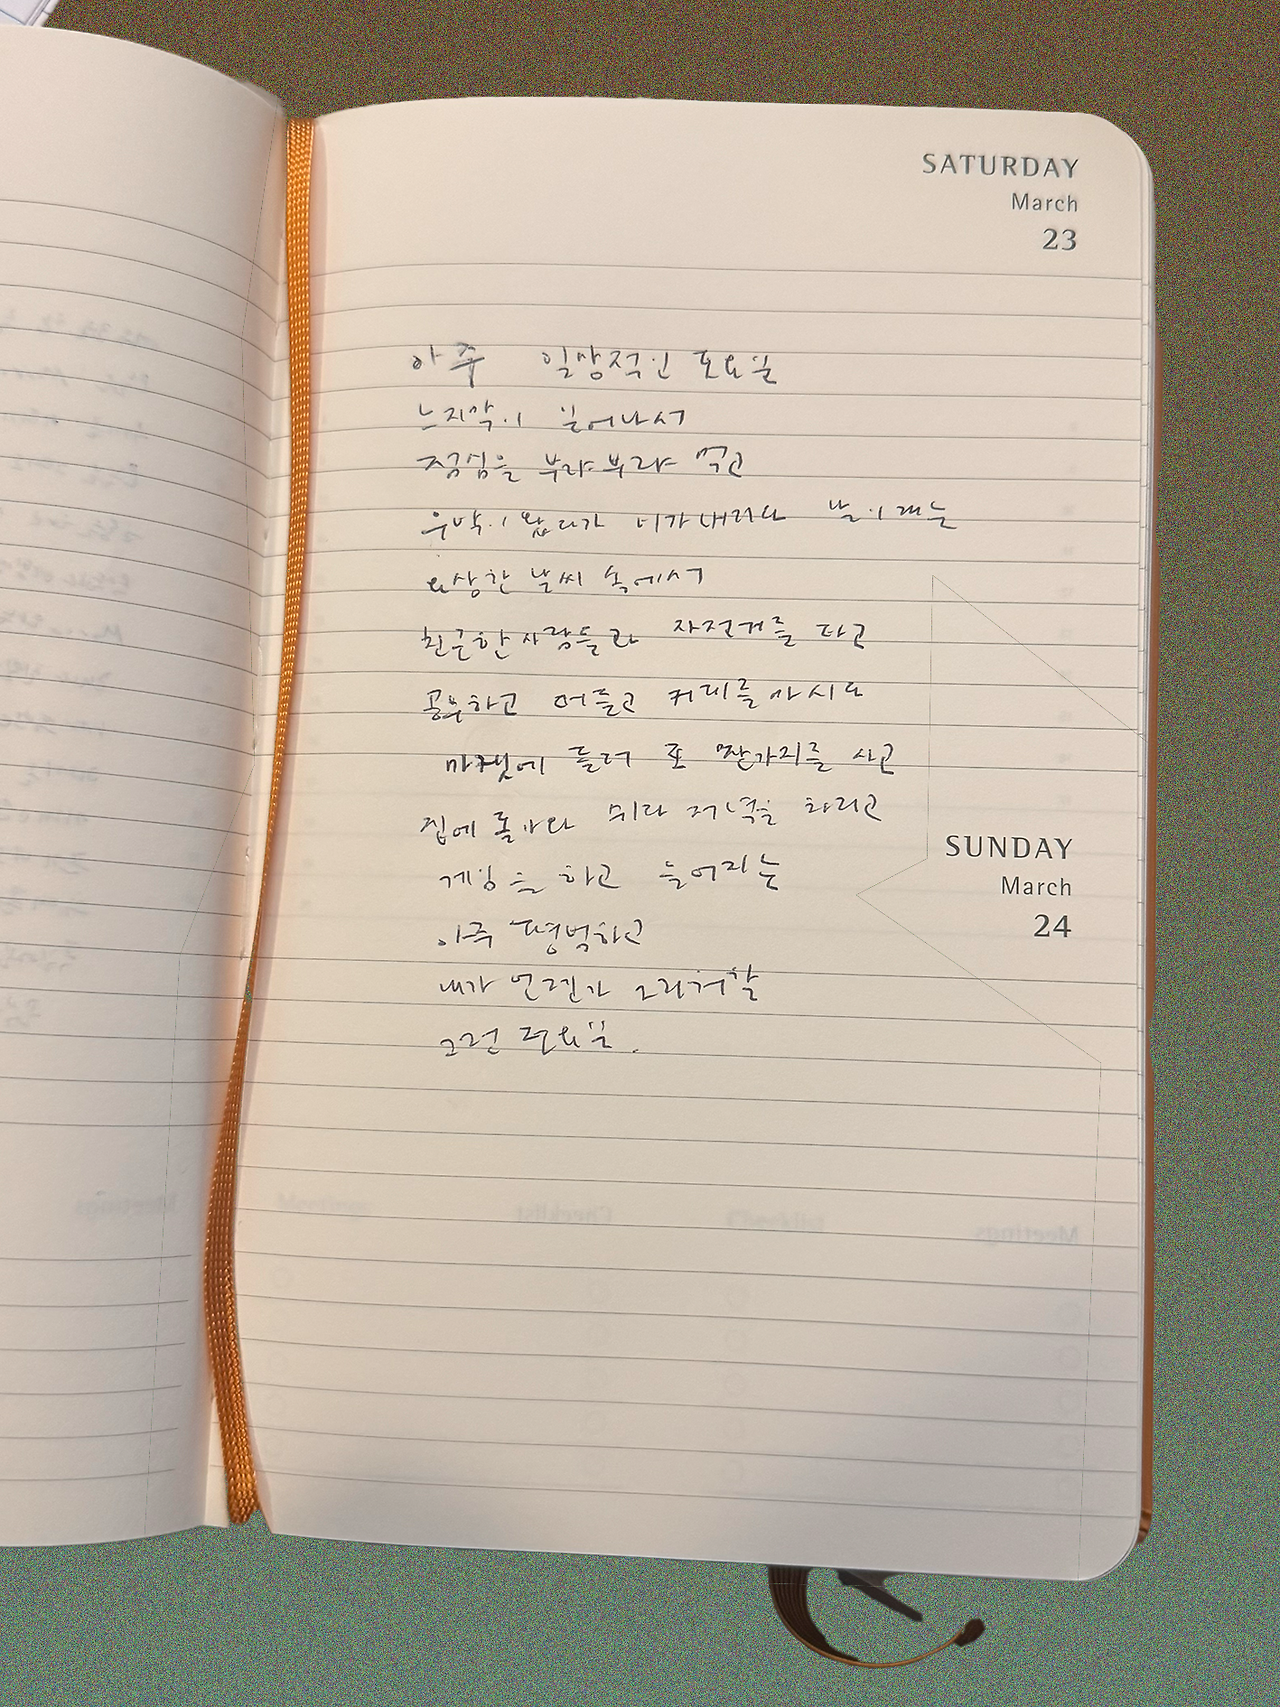 SATURDAY
March
23
아주 일상적인 토요일
느지막이 일어나서
점심을 부랴부랴 먹고
우박이 왔다가 비가 내리다 날이 개는
요상한 날씨 속에서
친근한 사람들과 자전거를 타고
공부하고 떠들고 커피를 마시며
마켓에 들러 또 짠가지를 사고
집에 돌아와 쉬다 저녁을 차리고
게임을 하고 늘어지는
아주 평범하고
내가 언젠가 그리워할
그런 토요일.
SUNDAY
March
24
Meetings
Checklist
Checklist
Meetings
Meetings